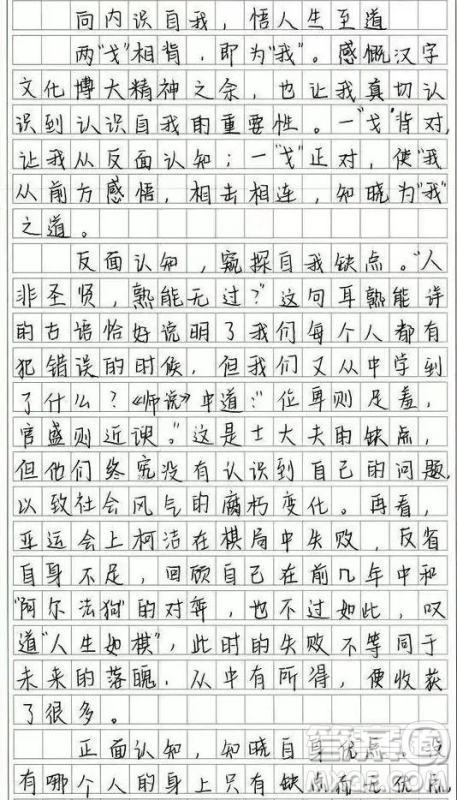 向内识自我，悟人生至道
两“戈”相背，即为“我”。感慨汉字
文化博大精神之余，也让我真切认
识到认识自我的重要性。一“戈”背对，
让我从反面认知；一“戈”正对，使“我
从前方感悟，相击相连，知晓为“我”
之道。
反面认知，窥探自我缺点。“人
非圣贤，熟能无过？”这句耳熟能详
的古语恰好说明了我们每个人都有
犯错误的时候，但我们又从中学到
了什么？《师说》中道：“位卑则足羞，
官盛则近谀。”这是士大夫的缺点，
但他们终究没有认识到自己的问题，
以致社会风气的腐朽变化。再看，
亚运会上柯洁在棋局中失败，反省
自身不足，回顾自己在前几年中和
“阿尔法狗”的对弈，也不过如此，叹
道“人生如棋”，此时的失败不等同于
未来的落魄，从中有所得，便收获
了很多。
正面认知，知晓自身优点。没
有哪个人的身上只有缺点而无优点，